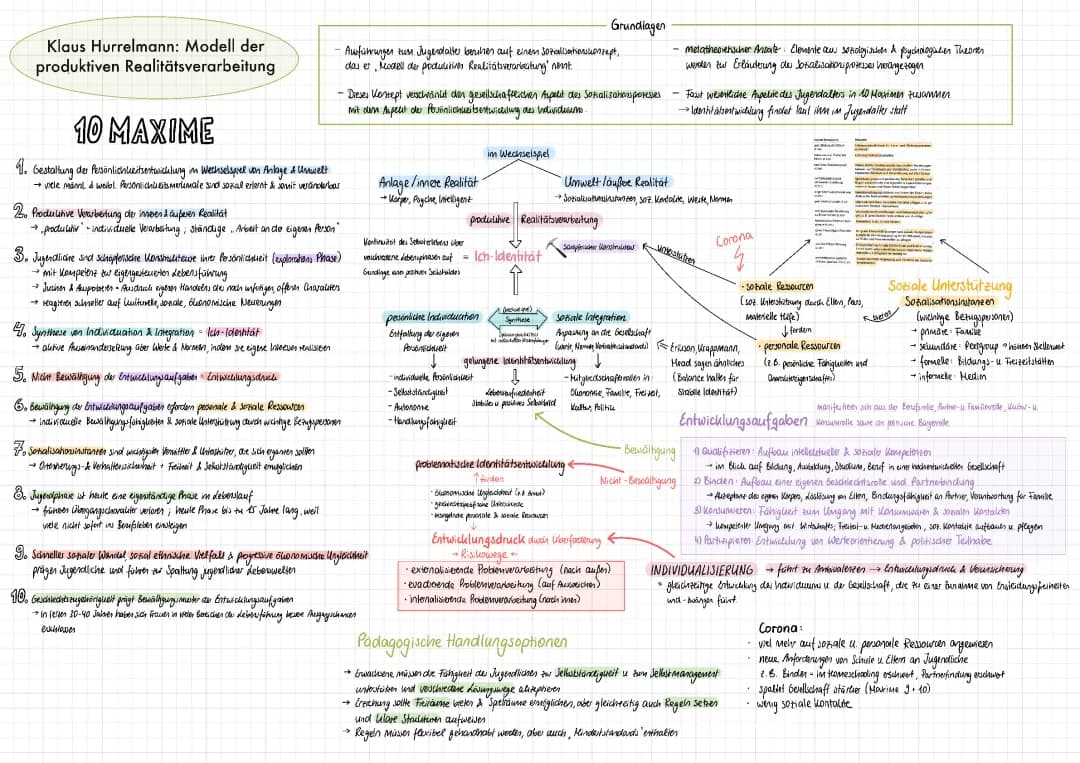 Klaus Hurrelmann: Modell der
produktiven Realitätsverarbeitung
Grundlagen
- Ausführungen zum Jugendalter beruhen auf einem Sozialisationskonzept,
das er „Modell der produktiven Realitätsverarbeitung" nennt.
- Dieses Konzept verschränkt den gesellschaftlichen Aspekt des Sozialisationsprozesses
mit dem Aspekt der Persönlichkeitsentwicklung des Individuums.
- metatheoretischer Ansatz: Elemente aus soziologischen & psychologischen Theorien
werden zur Erläuterung des Sozialisationsprozesses herangezogen
- Fasst wesentliche Aspekte des Jugendalters in 10 Maximen zusammen
→ Identitätsentwicklung findet laut ihm im Jugendalter statt
10 MAXIME
1. Gestaltung der Persönlichkeitsentwicklung im Wechselspiel von Anlage & Umwelt
→ viele männl. & weibl. Persönlichkeitsmerkmale sind sozial erlernt & somit veränderbar
2. Produktive Verarbeitung der inneren & äußeren Realität
→ „produktiv" - individuelle Verarbeitung, ständige „Arbeit an der eigenen Person"
3. Jugendliche sind schöpferische Konstrukteure ihrer Persönlichkeit (exploration Phase)
→ mit Kompetenz zur eigengesteuerten Lebensführung
→ Suchen & Ausprobieren = Ausdruck eigenen Handelns des noch unfertigen offenen Charakters
→ reagieren schneller auf kulturelle, soziale, ökonomische Neuerungen
4. Synthese von Individuation & Integration = Ich-Identität
→ aktive Auseinandersetzung über Werte & Normen, indem sie eigene Interessen realisieren
5. Nicht Bewältigung der Entwicklungsaufgaben = Entwicklungsdruck
6. Bewältigung der Entwicklungsaufgaben erfordern personale & soziale Ressourcen
→ individuelle Bewältigungsfähigkeiten & soziale Unterstützung durch wichtige Bezugspersonen
7. Sozialisationsinstanzen sind wichtigste Vermittler & Unterstützer, die sich ergänzen sollen
→ Orientierungs- & Verhaltenssicherheit + Freiheit & Selbstständigkeit ermöglichen
8. Jugendphase ist heute eine eigenständige Phase im Lebenslauf
→ früheren Übergangscharakter verloren; heute Phase bis zu 15 Jahre lang, weil
viele nicht sofort ins Berufsleben einsteigen
9. Schneller sozialer Wandel, sozial ethnische Vielfalt & progressive ökonomische Ungleichheit
prägen Jugendliche und führen zur Spaltung jugendlicher Lebenswelten
10. Geschlechtszugehörigkeit prägt Bewältigungsmuster der Entwicklungsaufgaben
→ in letzen 30-40 Jahren haben sich Frauen in vielen Bereichen der Lebensführung bessere Ausgangschancen
erschlossen
im Wechselspiel
Anlage / innere Realität
→ Körper, Psyche, Intelligenz
Umwelt / äußere Realität
→ Sozialisationsinstanzen, soz. Kontakte, Werte, Normen
produktive Realitätsverarbeitung
Kontinuität des Selbsterlebens über
verschiedene Lebensphasen auf
Grundlage von positivem Selbstbild
= Ich-Identität
schöpferischer Konstrukteur
unterstützen
Corona
persönliche Individuation
Entfaltung der eigenen
Persönlichkeit
Synthese
soziale Integration
Anpassung an die Gesellschaft
gelungene Identitätsentwicklung
- individuelle Persönlichkeit
- Selbstständigkeit
- Autonomie
- Handlungsfähigkeit
Lebenszufriedenheit
Stabiles u. positives Selbstbild
- Mitgliedschaftsrollen in:
Ökonomie, Familie, Freizeit,
Kultur, Politik
Erikson, Krappmann,
Mead sagen ähnliches
(Balance halten für
stabile Identität)
- soziale Ressourcen
(soz. Unterstützung durch Eltern, Pass,
materielle Hilfe)
↓ fördern
- personale Ressourcen
(z.B. persönliche Fähigkeiten und
Soziale Unterstützung
Sozialisationsinstanzen
(wichtige Bezugspersonen)
→ primäre: Familie
→ sekundäre: Peergroup
→ formelle: Bildungs- u. Freizeitstätten
→ informelle: Medien
Entwicklungsaufgaben
manifestieren sich aus der Berufsrolle, Partner- u. Familienrolle, Kultur- u.
Konsumrolle sowie der politischen Bürgerrolle
1) Qualifizieren: Aufbau intellektueller & sozialer Kompetenzen
→ im Blick auf Bildung, Ausbildung, Studium, Beruf in einer hochentwickelten Gesellschaft
2) Binden: Aufbau einer eigenen Geschlechtsrolle und Partnerbindung
→ Akzeptanz des eignen Körpers, Loslösung von Eltern, Bindungsfähigkeit an Partner, Verantwortung für Familie
3) Konsumieren: Fähigkeit zum Umgang mit Konsumwaren & sozialen Kontakten
→ kompetenter Umgang mit Wirtschafts-, Freizeit- u. Medienangeboten, soz. Kontakte aufbauen u. pflegen
4) Partizipieren: Entwicklung von Werteorientierung & politischer Teilhabe
Bewältigung
Nicht-Bewältigung
problematische Identitätsentwicklung
↑ fördern
- ökonomische Ungleichheit (z.B. Armut)
- geschlechtsspezifische Unterschiede
- mangelnde personale & soziale Ressourcen
Entwicklungsdruck durch Überforderung
→ Risikowege ←
- externalisierende Problemverarbeitung (nach außen)
- evadierende Problemverarbeitung (auf Ausweichen)
- internalisierende Problemverarbeitung (nach innen)
INDIVIDUALISIERUNG → führt zu Ambivalenzen → Entwicklungsdruck & Verunsicherung
= gleichzeitige Entwicklung des Individuums u. der Gesellschaft, die zu einer Zunahme von Entscheidungsfreiheiten
und -zwängen führt.
Pädagogische Handlungsoptionen
→ Erwachsene müssen die Fähigkeit der Jugendlichen zur Selbstständigkeit u. zum Selbstmanagement
unterstützen und verschiedene Lösungswege akzeptieren
→ Erziehung sollte Freiräume bieten & Spielräume ermöglichen, aber gleichzeitig auch Regeln setzen
und klare Strukturen aufweisen
→ Regeln müssen flexibel gehandhabt werden, aber auch „Mindeststandards" enthalten
Corona:
- viel mehr auf soziale u. personale Ressourcen angewiesen
- neue Anforderungen von Schule u. Eltern an Jugendliche
z.B. Binden - im Homeschooling erschwert, Partnerfindung erschwert
- spaltet Gesellschaft stärker (Maxime 9+10)
- wenig soziale Kontakte